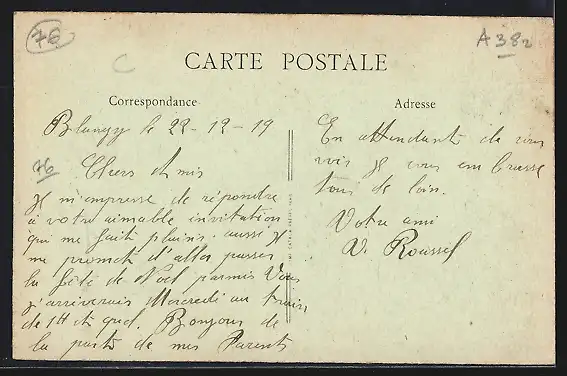 76
A 382
C
CARTE POSTALE
Correspondance
Adresse
Blangy le 22-12-19
76
Chers Amis
Je m'empresse de répondre
à votre aimable invitation
qui me fait plaisir. aussi je
me promet d'aller passer
la fête de Noël parmis Vous
j'arriverais Mercredi au train
de 1H et que. Bonjour de
la parts de mes Parents
En attendant de vous
voir je vous embrasse
tous de loin.
Votre ami
V. Roussel